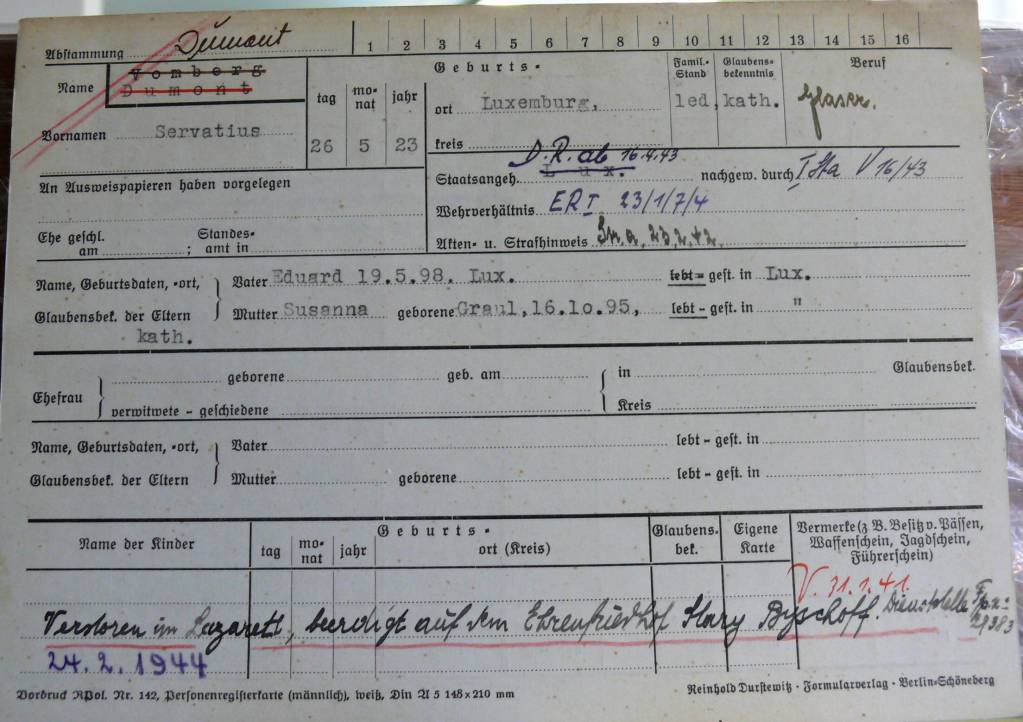 Abstammung Dumont 1 2 3 4 5 6 7 8 9 10 11 12 13 14 15 16
Name Vomberg Dumont
Geburts-
tag monat jahr ort Luxemburg, Famil.-Stand led. Glaubens-bekenntnis kath. Beruf Glaser.
Vornamen Servatius 26 5 23 kreis
An Ausweispapieren haben vorgelegen
D.R. ab 16.4.43
Staatsangeh. Lux. nachgew. durch I Sta V 16/43
Wehrverhältnis ER I 23/1/7/4
Ehe geschl. am ; Standes-amt in
Akten- u. Strafhinweis 23.2.42.
Name, Geburtsdaten, -ort, Vater Eduard 19.5.98. Lux. lebt - gest. in Lux.
Glaubensbek. der Eltern Mutter Susanna geborene Graul, 16.10.95, lebt - gest. in "
kath.
Ehefrau geborene geb. am in Glaubensbek.
verwitwete - geschiedene Kreis
Name, Geburtsdaten, -ort, Vater lebt - gest. in
Glaubensbek. der Eltern Mutter geborene lebt - gest. in
Name der Kinder Geburts- tag monat jahr ort (Kreis) Glaubens-bek. Eigene Karte Vermerke (z. B. Besitz v. Pässen, Waffenschein, Jagdschein, Führerschein)
V. 31.1.41.
Verstoren im Lazarett, beerdigt auf dem Ehrenfriedhof Stary Bychoff. Dienststelle Fp.n.
24.2.1944
Vordruck RPol. Nr. 142, Personenregisterkarte (männlich), weiß, Din A 5 148×210 mm
Reinhold Durstewitz · Formularverlag · Berlin-Schöneberg